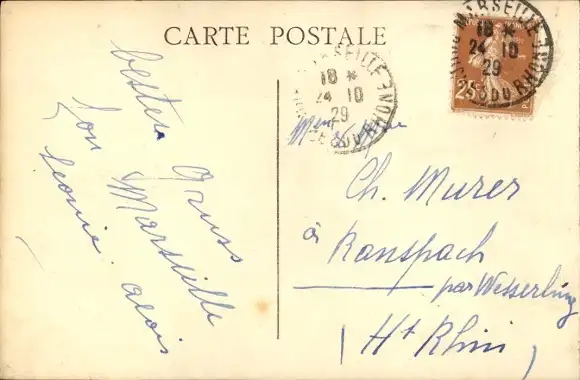 CARTE POSTALE
MARSEILLE
18 *
24 10
29
BCHES DU RHONE
MARSEILLE
18 *
24 10
29
DU RHONE
25c
besten Gruss
von Marseille
Leonie Alois
Ch. Murer
à Ranspach
par Wesserling
(Ht Rhin)